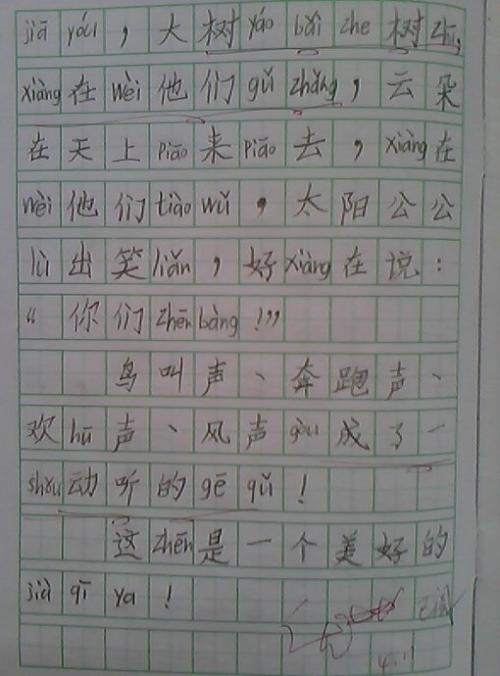 jiā yóu，大树yáo bǎi zhe树zhī，
xiàng在wèi他们gǔ zhǎng，云朵
在天上piāo来piāo去，xiàng在
wèi他们tiào wǔ，太阳公公
lù出笑liǎn，好xiàng在说：
“你们zhēn bàng！”
鸟叫声、奔跑声、
欢hū声、风声gòu成了一
shǒu动听的gē qǔ！
这zhēn是一个美好的
jià qī ya！